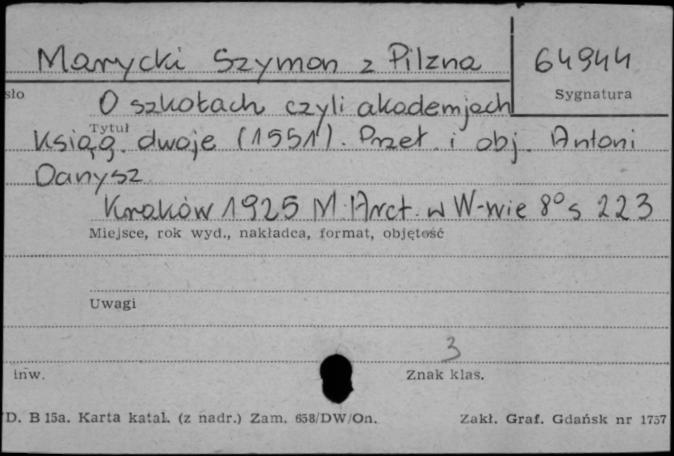 Marycki Szymon z Pilzna 64944
sło Sygnatura
O szkołach czyli akademjach
Tytuł
Ksiąg dwoje (1551). Przeł. i obj. Antoni
Danysz
Kraków 1925 M. Arct. w W-wie 8° s 223
Miejsce, rok wyd., nakładca, format, objętość
Uwagi
3
inw. Znak klas.
D. B 15a. Karta katal. (z nadr.) Zam. 658/DW/On. Zakł. Graf. Gdańsk nr 1757